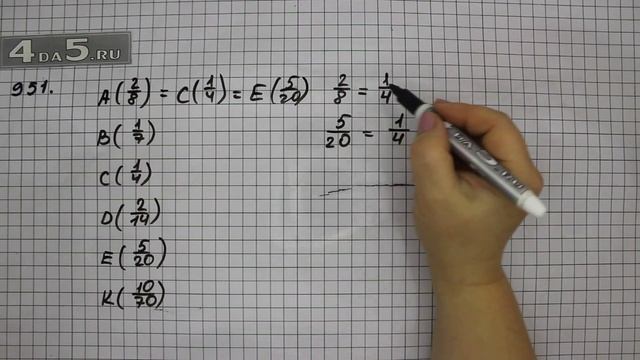 4DA5.RU
951.
A(2/8) = C(1/4) = E(5/20) 2/8 = 1/4
B(1/7) 5/20 = 1/4
C(1/4)
D(2/14)
E(5/20)
K(10/70)